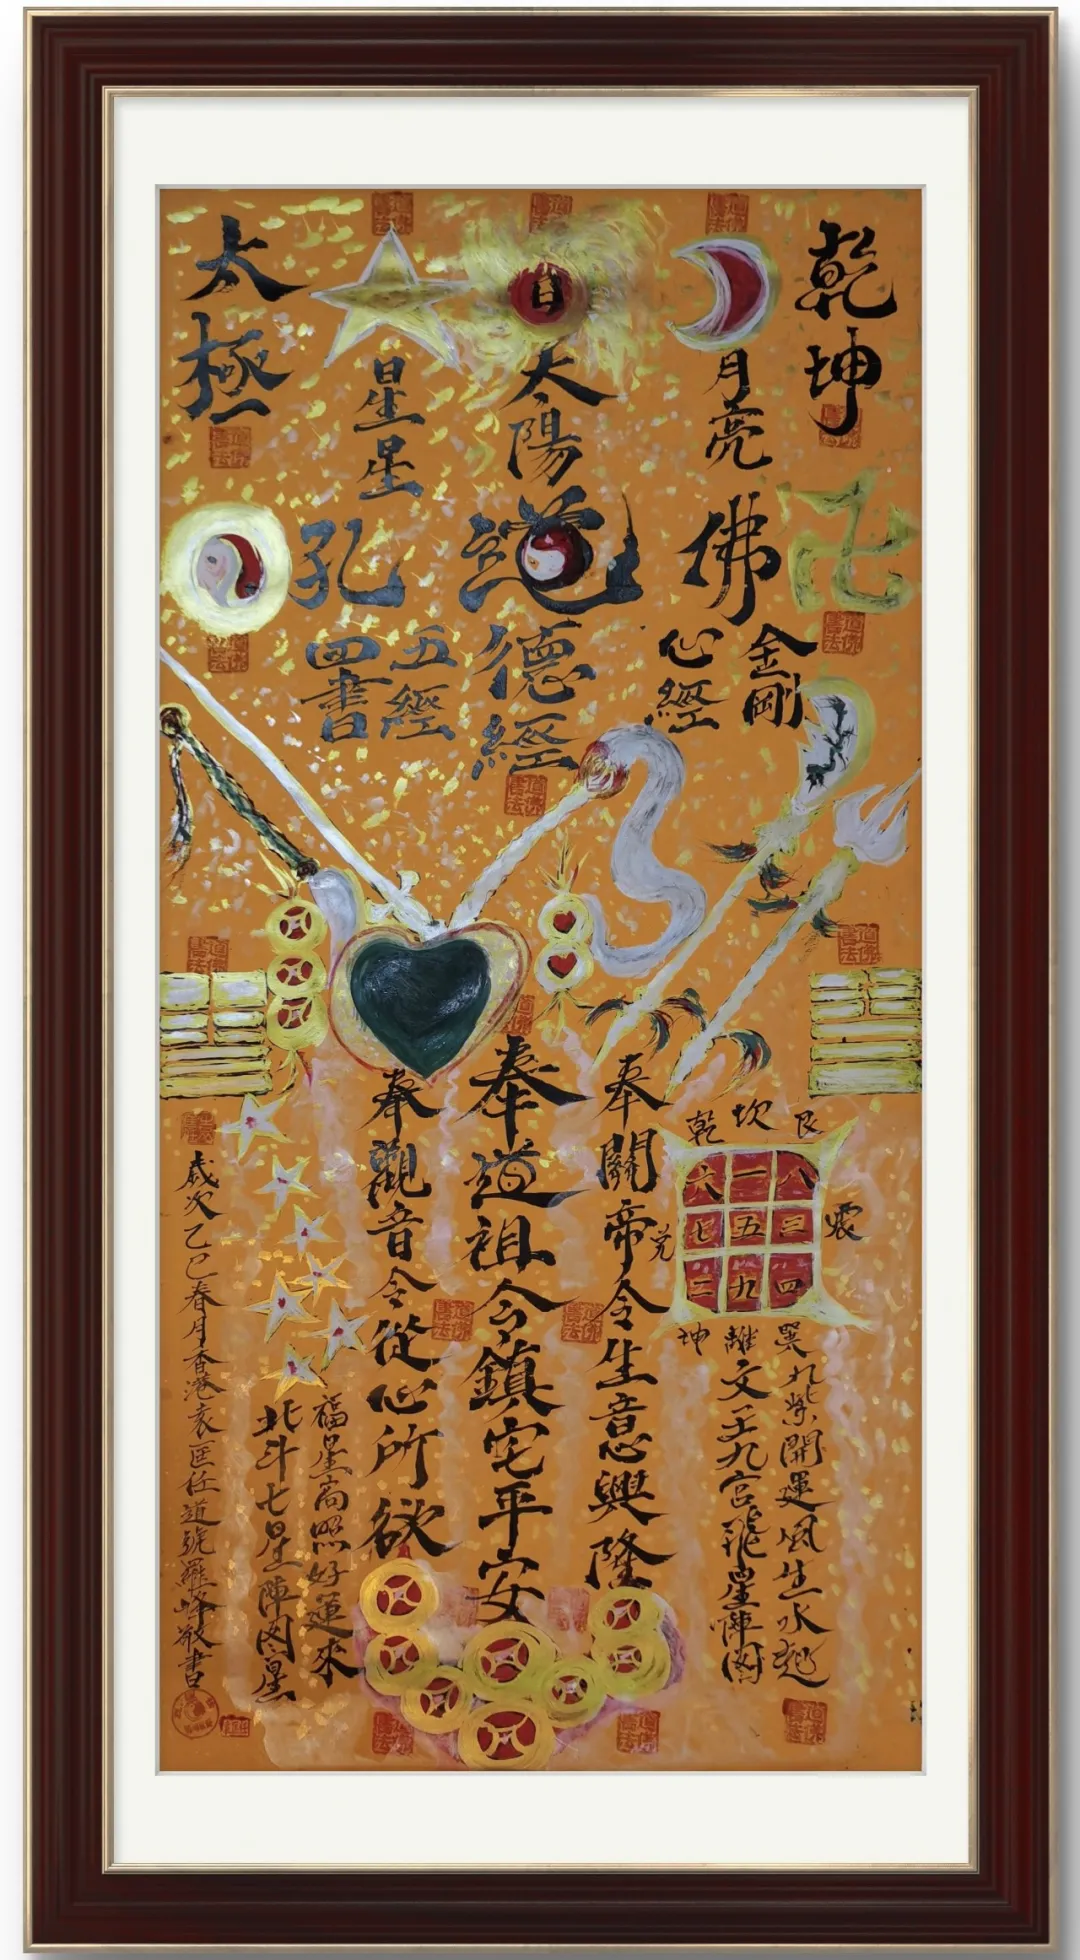 乾坤
月亮
太陽
日
星星
太極
佛
金剛
心經
道
德經
孔
五經
四書
奉關帝令生意興隆
奉道祖令鎮宅平安
奉觀音令從心所欲
乾 坎 艮
六 一 八
兌 七 五 三 震
二 九 四
坤 離 巽
九紫開運風生水起
文王九宮飛星陣图
福星高照好運來
北斗七星陣图
歲次乙巳春月香港袁匡任道號羅峰敬書